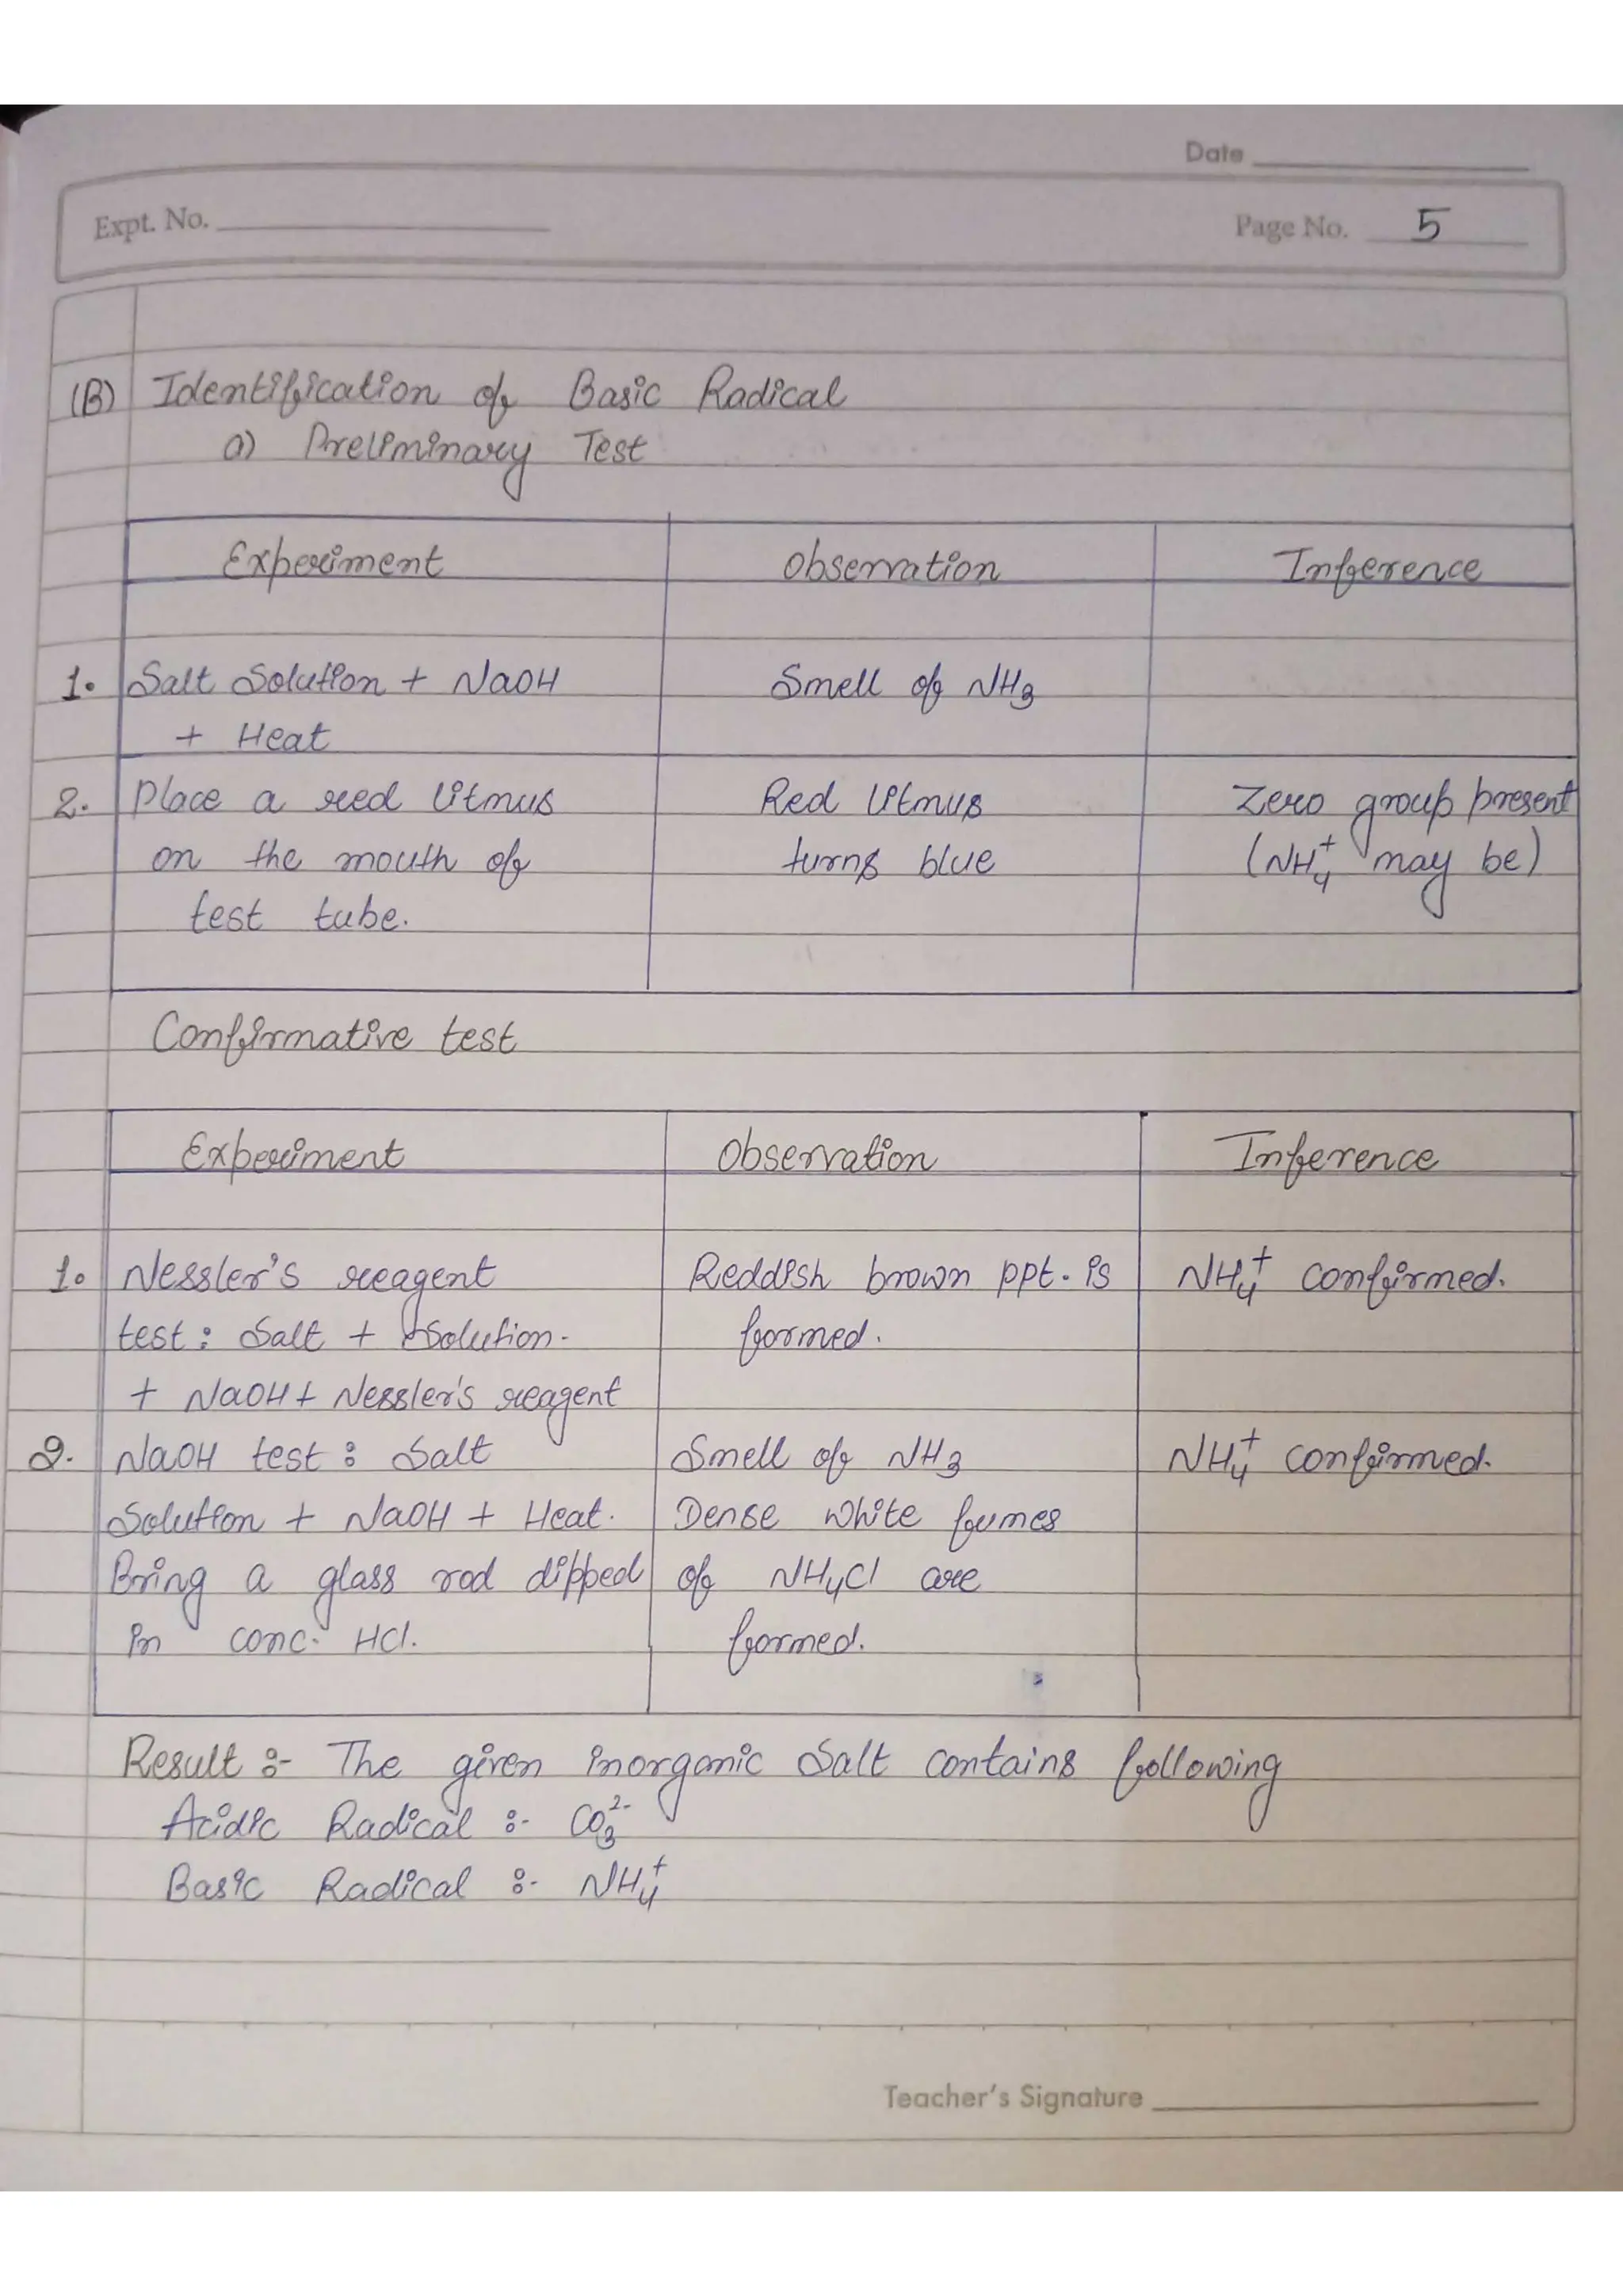 Date
Expt. No.
Page No. 5
(B) Identification of Basic Radical
a) Preliminary Test
Experiment Observation Inference
1. Salt Solution + NaOH Smell of NH3
+ Heat
2. Place a red litmus Red litmus Zero group present
on the mouth of turns blue (NH4+ may be)
test tube.
Confirmative test
Experiment Observation Inference
1. Nessler's reagent Reddish brown ppt. is NH4+ confirmed.
test : Salt + Solution. formed.
+ NaOH + Nessler's reagent
2. NaOH test : Salt Smell of NH3 NH4+ confirmed.
Solution + NaOH + Heat. Dense white fumes
Bring a glass rod dipped of NH4Cl are
in conc. HCl. formed.
Result :- The given inorganic Salt contains following
Acidic Radical :- CO3 2-
Basic Radical :- NH4+
Teacher's Signature